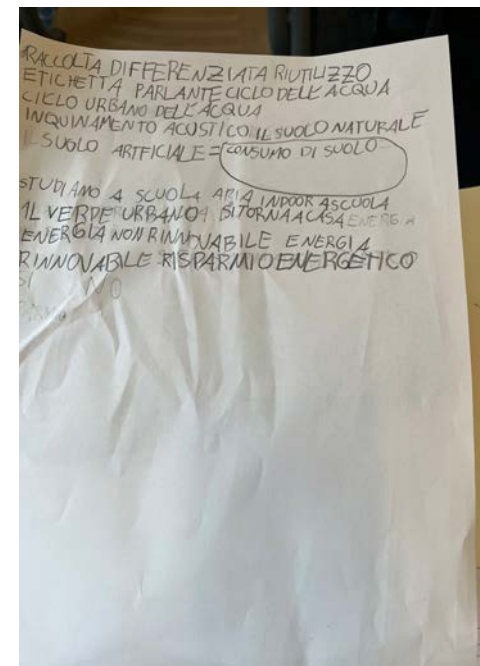 RACCOLTA DIFFERENZIATA RIUTILIZZO
ETICHETTA PARLANTE CICLO DELL'ACQUA
CICLO URBANO DELL'ACQUA
INQUINAMENTO ACUSTICO IL SUOLO NATURALE
IL SUOLO ARTFICIALE = CONSUMO DI SUOLO
STUDIAMO A SCUOLA ARIA INDOOR A SCUOLA
IL VERDE URBANO SI TORNA A CASA ENERGIA
ENERGIA NON RINNOVABILE ENERGIA
RINNOVABILE RISPARMIO ENERGETICO
SI NO